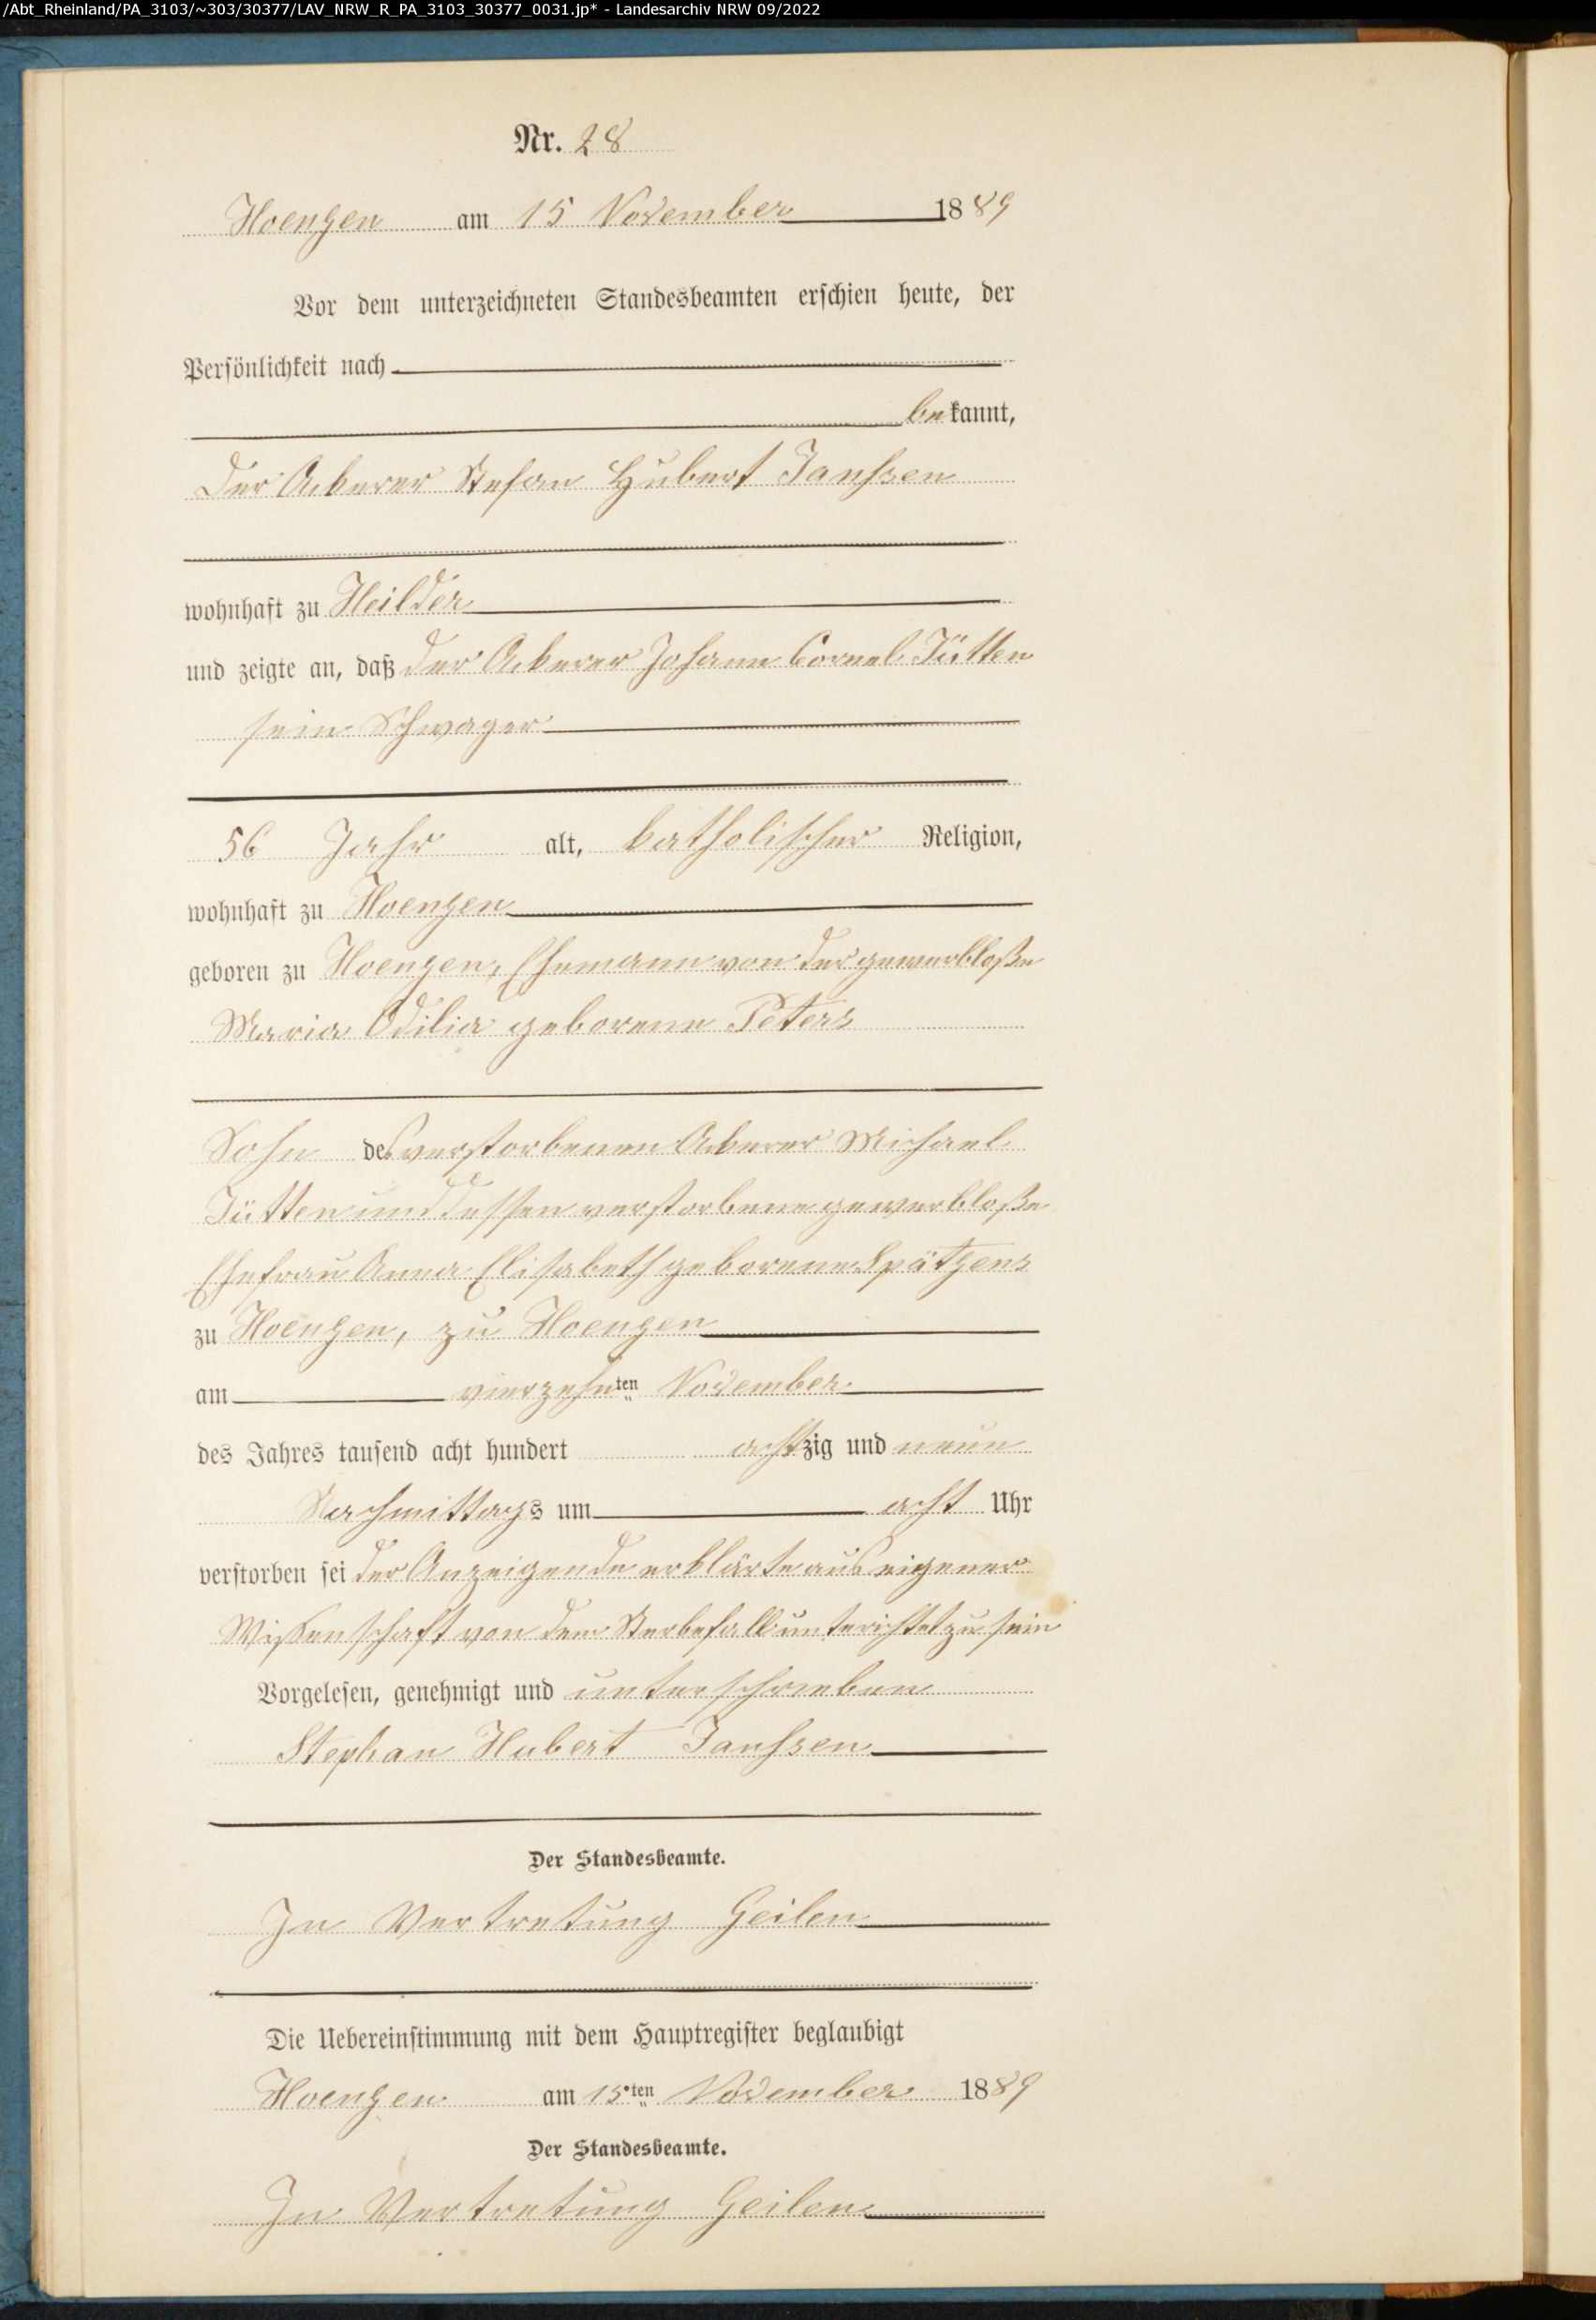 /Abt_Rheinland/PA_3103/~303/30377/LAV_NRW_R_PA_3103_30377_0031.jp* - Landesarchiv NRW 09/2022
Nr. 28
Hoengen am 15 November 1889
Vor dem unterzeichneten Standesbeamten erschien heute, der
Persönlichkeit nach
bekannt,
der Ackerer Stefan Hubert Janssen
wohnhaft zu Heilder
und zeigte an, daß der Ackerer Johann Cornel Jütten
sein Schwager
56 Jahr alt, katholischer Religion,
wohnhaft zu Hoengen
geboren zu Hoengen, Ehemann von der gewerbloße
Maria Odilia geborene Peters
Sohn des verstorbenen Ackerer Michael
Jütten und dessen verstorbene gewerbloße
Ehefrau Anna Elisabeth geborene Spätgens
zu Hoengen, zu Hoengen
am vierzehnten November
des Jahres tausend acht hundert achtzig und neun
Nachmittags um acht Uhr
verstorben sei der Anzeigende erklärte aus eigener
Wißenschaft von dem Sterbefall unterichtet zu sein
Vorgelesen, genehmigt und unterschrieben
Stephan Hubert Janssen
Der Standesbeamte.
In Vertretung Geilen
Die Uebereinstimmung mit dem Hauptregister beglaubigt
Hoengen am 15ten November 1889
Der Standesbeamte.
In Vertretung Geilen